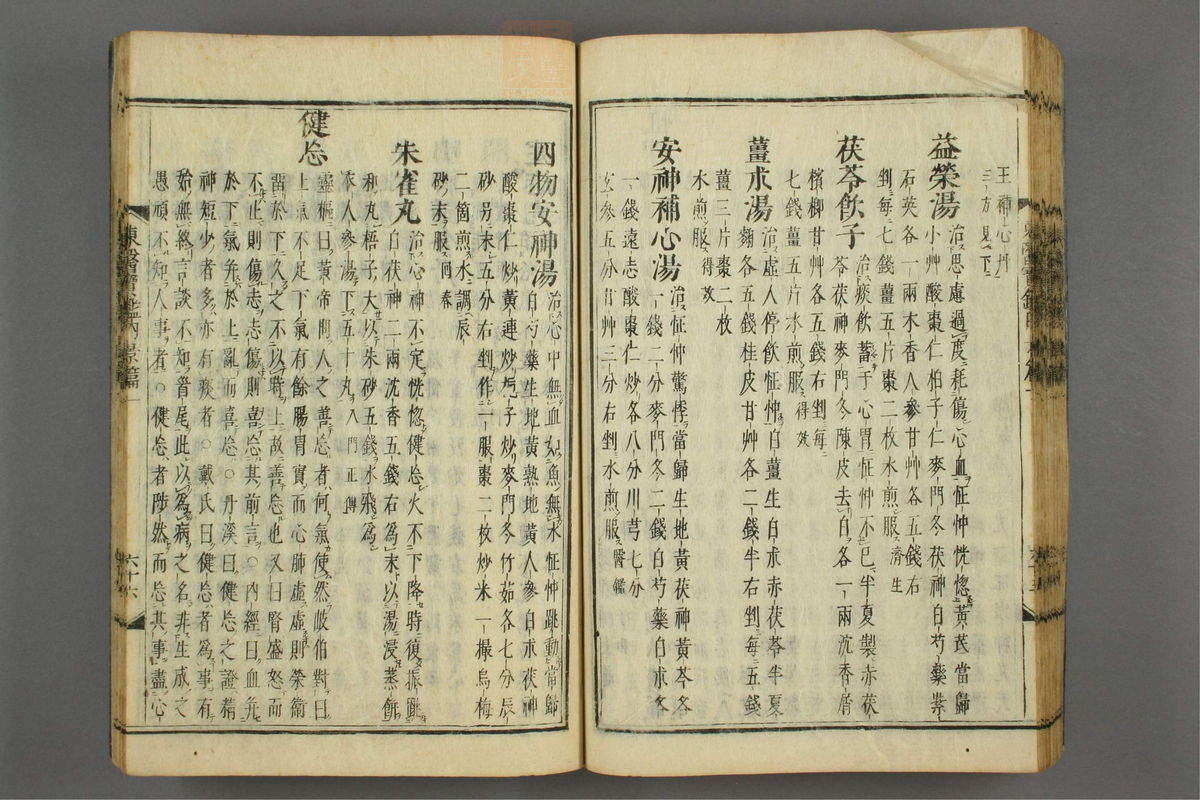 王補心丹
三方見下
益榮湯 治思慮過度耗傷心血怔忡恍惚黃芪當歸
小艸酸棗仁柏子仁麥門冬茯神白芍藥紫
石英各一兩木香人參甘艸各五錢右
剉每七錢薑五片棗二枚水煎服濟生
茯苓飲子 治痰飲蓄于心胃怔忡不已半夏製赤茯
苓茯神麥門冬陳皮去白各一兩沈香
檳榔甘艸各五錢右剉每
七錢薑五片水煎服得效
薑朮湯 治虛人停飲怔忡白薑生白朮赤茯苓半夏
麴各五錢桂皮甘艸各二錢半右剉每五錢
薑三片棗二枚
水煎服得效
安神補心湯 治怔忡驚悸當歸生地黃茯神黃芩各
一錢二分麥門冬二錢白芍藥白朮各
一錢遠志酸棗仁炒各八分川芎七分
玄參五分甘艸三分右剉水煎服醫鑑
四物安神湯 治心中無血如魚無水怔忡跳動當歸
白芍藥生地黃熟地黃人參白朮茯神
酸棗仁炒黃連炒梔子炒麥門冬竹茹各七分辰
砂另末五分右剉作一服棗二枚炒米一撮烏梅
二箇煎水調辰
砂末服回春
朱雀丸 治心神不定恍惚健忘火不下降時復振跳
白茯神二兩沈香五錢右爲末以湯浸蒸餅
和丸梧子大以朱砂五錢水飛爲
衣人參湯下五十丸入門正傳
健忘
靈樞曰黃帝問人之善忘者何氣使然岐伯對曰
上氣不足下氣有餘腸胃實而心肺虛虛則榮衛
留於下久之不以時上故善忘也又曰腎盛怒而
不止則傷志志傷則喜忘其前言○內經曰血并
於下氣并於上亂而喜忘○丹溪曰健忘之證精
神短少者多亦有痰者○戴氏曰健忘者爲事有
始無終言談不知首尾此以爲病之名非生成之
愚頑不知人事者○健忘者陟然而忘其事盡心
東醫寶鑑內景篇一
六十六